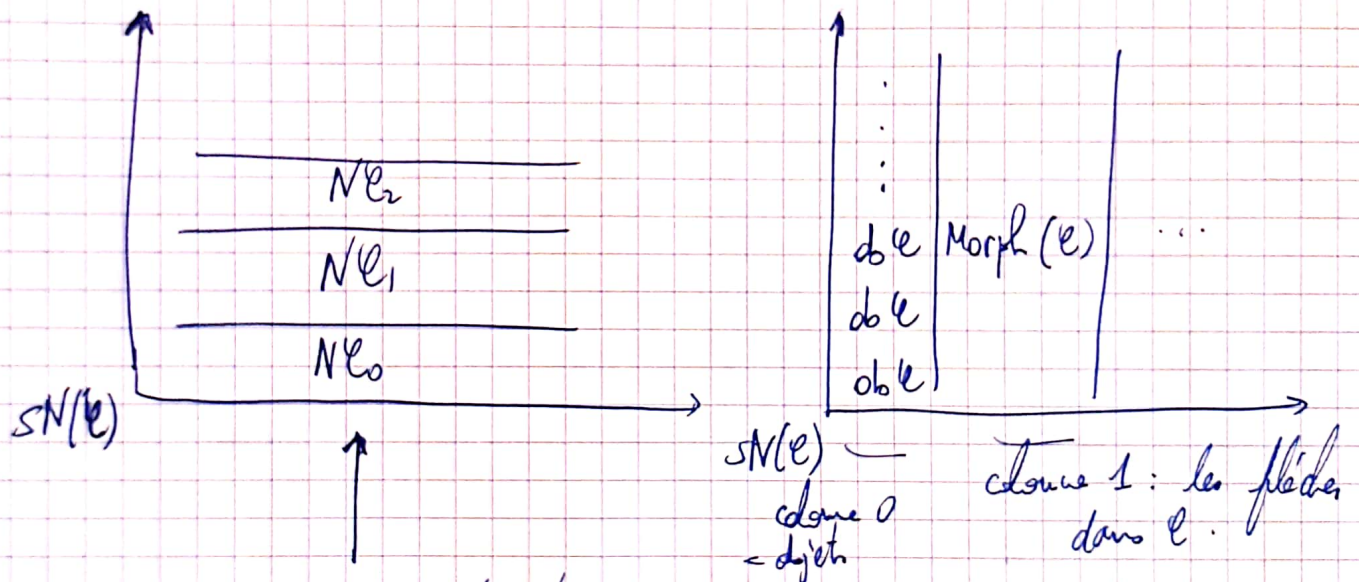 N𝒞₂
N𝒞₁
N𝒞₀
sN(𝒞)
⋮
ob 𝒞
ob 𝒞
ob 𝒞
Morph (𝒞)
...
sN(𝒞)
colonne 0
= objets
colonne 1 : les flèches
dans 𝒞.